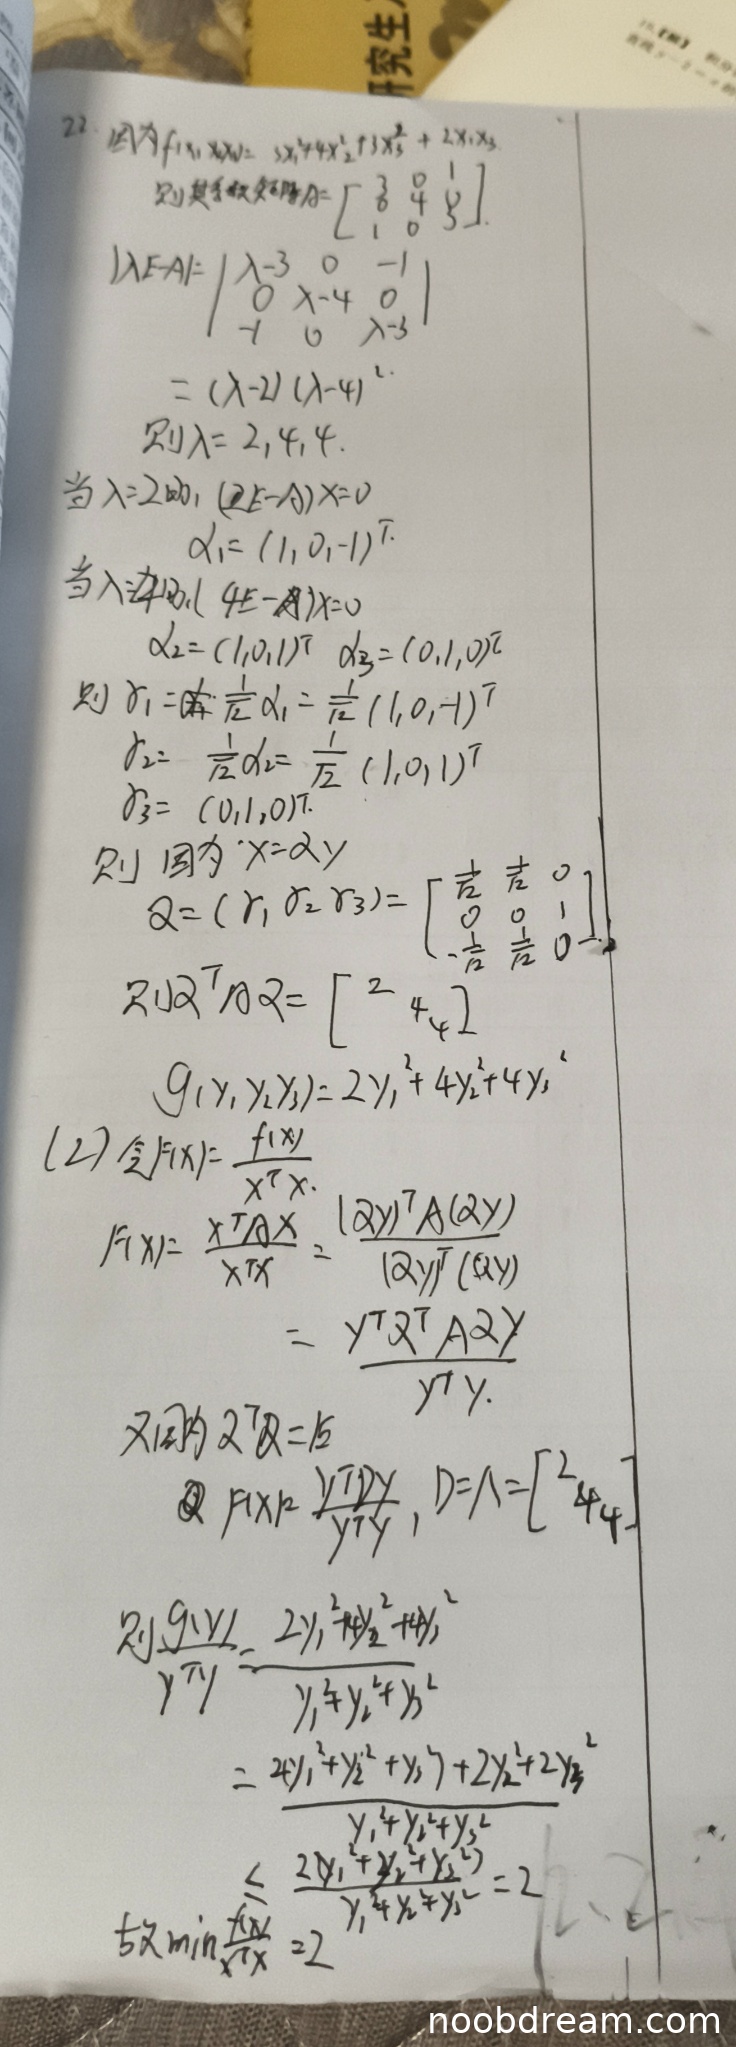 研究生
22. 因为f(x₁x₂x₃)= 3x₁²+4x₂²+3x₃² + 2x₁x₃
则其系数矩阵A= [3 0 1
0 4 0
1 0 3].
|λE-A|= |λ-3 0 -1
0 λ-4 0
-1 0 λ-3|
= (λ-2)(λ-4)².
则λ= 2,4,4.
当λ=2时, (2E-A)x=0
α₁= (1,0,-1)ᵀ.
当λ=4时,(4E-A)x=0
α₂=(1,0,1)ᵀ α₃=(0,1,0)ᵀ
则 γ₁= 1/√2 α₁= 1/√2 (1,0,-1)ᵀ
γ₂= 1/√2 α₂= 1/√2 (1,0,1)ᵀ
γ₃= (0,1,0)ᵀ.
则 因为 x=Qy
Q=(γ₁ γ₂ γ₃)= [1/√2 1/√2 0
0 0 1
-1/√2 1/√2 0].
则QᵀAQ= [2 4 4]
g(y₁y₂y₃)=2y₁²+4y₂²+4y₃²
(2) 令F(x)= f(x)/xᵀx.
F(x)= xᵀAx/xᵀx = (Qy)ᵀA(Qy)/(Qy)ᵀ(Qy)
= yᵀQᵀAQy/yᵀy.
又因为QᵀQ=E
F(x)= yᵀDy/yᵀy, D=Λ=[2 4 4]
则 g(y)/yᵀy = 2y₁²+4y₂²+4y₃²/y₁²+y₂²+y₃²
= 2(y₁²+y₂²+y₃²)+2y₂²+2y₃²/y₁²+y₂²+y₃²
≤ 2(y₁²+y₂²+y₃²)/y₁²+y₂²+y₃² =2
故 min f(x)/xᵀx =2
noobdream.com